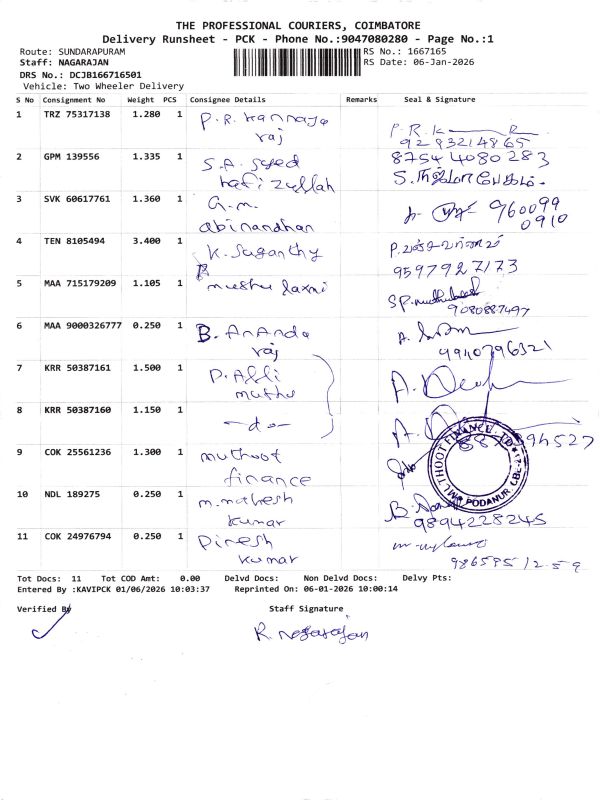 THE PROFESSIONAL COURIERS, COIMBATORE
Delivery Runsheet - PCK - Phone No.:9047080280 - Page No.:1
Route: SUNDARAPURAM
RS No.: 1667165
Staff: NAGARAJAN
RS Date: 06-Jan-2026
DRS No.: DCJB166716501
Vehicle: Two Wheeler Delivery
S No Consignment No Weight PCS Consignee Details Remarks Seal & Signature
1 TRZ 75317138 1.280 1 P.R. Kannaja
raj
P.R.K
9293214865
2 GPM 139556 1.335 1 S.A. Syed
hafizullah
8754 4080283
3 SVK 60617761 1.360 1 G.m.
abinandhan
960099
0910
4 TEN 8105494 3.400 1 K. Suganthy
9597927173
5 MAA 715179209 1.105 1 muthu laxmi
9080887497
6 MAA 9000326777 0.250 1 B. Ananda
raj
9940796321
7 KRR 50387161 1.500 1 P. Alli
muthu
8 KRR 50387160 1.150 1 -do-
94527
9 COK 25561236 1.300 1 muthoot
finance
PODANUR
10 NDL 189275 0.250 1 m. mahesh
kumar
9894228245
11 COK 24976794 0.250 1 Dinesh
kumar
Tot Docs: 11 Tot COD Amt: 0.00 Delvd Docs: Non Delvd Docs: Delvy Pts:
Entered By :KAVIPCK 01/06/2026 10:03:37 Reprinted On: 06-01-2026 10:00:14
Verified By Staff Signature
R. Nagarajan